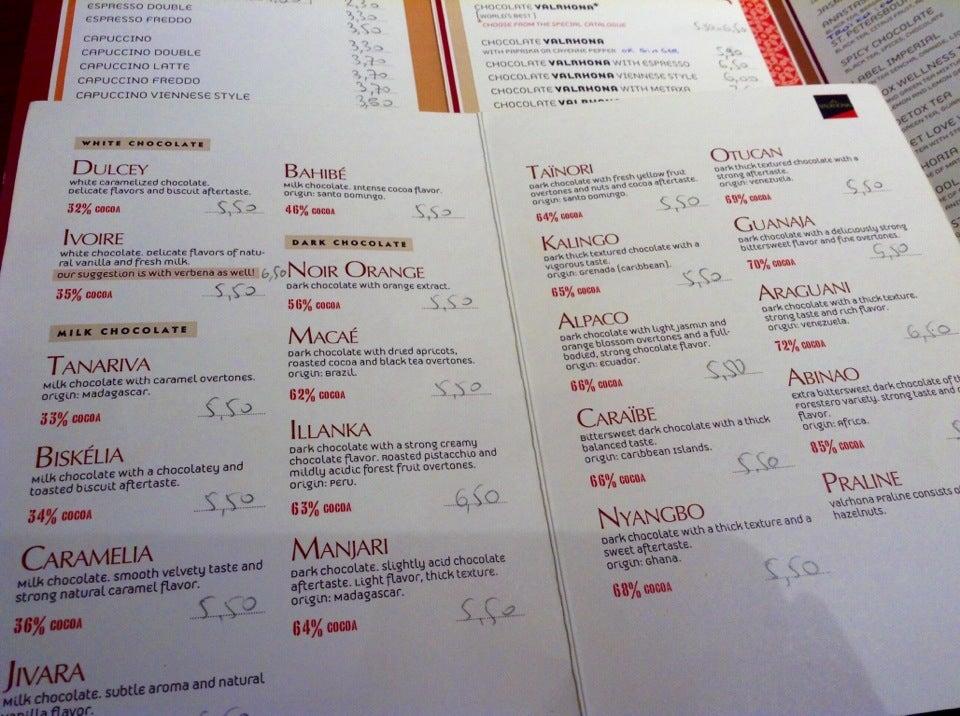 ESPRESSO DOUBLE
ESPRESSO FREDDO 3,50
CAPUCCINO 3,30
CAPUCCINO DOUBLE 3,70
CAPUCCINO LATTE
CAPUCCINO FREDDO 3,70
CAPUCCINO VIENNESE STYLE 3,80
CHOCOLATE VALRHONA*
[WORLD'S BEST]
CHOOSE FROM THE SPECIAL CATALOGUE 5,50-6,50
CHOCOLATE VALRHONA
WITH PAPRIKA OR CAYENNE PEPPER OR GINGER
CHOCOLATE VALRHONA WITH ESPRESSO 6,50
CHOCOLATE VALRHONA VIENNESE STYLE 6,00
CHOCOLATE VALRHONA WITH METAXA
SPICY CHOCOLATE
LABEL IMPERIAL
WELLNESS
DETOX TEA
WHITE CHOCOLATE
DULCEY
White caramelized chocolate.
Delicate flavors and biscuit aftertaste.
32% COCOA 5,50
IVOIRE
White chocolate. Delicate flavors of natu-
ral vanilla and fresh milk.
Our suggestion is with verbena as well! 6,50
35% COCOA 5,50
MILK CHOCOLATE
TANARIVA
Milk chocolate with caramel overtones.
Origin: Madagascar.
33% COCOA 5,50
BISKÉLIA
Milk chocolate with a chocolatey and
toasted biscuit aftertaste.
34% COCOA 5,50
CARAMELIA
Milk chocolate. Smooth velvety taste and
strong natural caramel flavor.
36% COCOA 5,50
JIVARA
Milk chocolate. Subtle aroma and natural
vanilla flavor.
BAHIBÉ
Milk chocolate. Intense cocoa flavor.
Origin: Santo Domingo.
46% COCOA 5,50
DARK CHOCOLATE
NOIR ORANGE
Dark chocolate with orange extract.
56% COCOA 5,50
MACAÉ
Dark chocolate with dried apricots,
roasted cocoa and black tea overtones.
Origin: Brazil.
62% COCOA 5,50
ILLANKA
Dark chocolate with a strong creamy
chocolate flavor. Roasted pistacchio and
mildly acidic forest fruit overtones.
Origin: Peru.
63% COCOA 6,50
MANJARI
Dark chocolate. Slightly acid chocolate
aftertaste. Light flavor, thick texture.
Origin: Madagascar.
64% COCOA 5,50
TAÏNORI
Dark chocolate with fresh yellow fruit
overtones and nuts and cocoa aftertaste.
Origin: Santo Domingo.
64% COCOA 5,50
KALINGO
Dark thick textured chocolate with a
vigorous taste.
Origin: Grenada (Caribbean).
65% COCOA 5,50
ALPACO
Dark chocolate with light jasmin and
orange blossom overtones and a full-
bodied, strong chocolate flavor.
Origin: Ecuador.
66% COCOA 5,50
CARAÏBE
Bittersweet dark chocolate with a thick
balanced taste.
Origin: Caribbean Islands.
66% COCOA 5,50
NYANGBO
Dark chocolate with a thick texture and a
sweet aftertaste.
Origin: Ghana.
68% COCOA 5,50
OTUCAN
Dark thick textured chocolate with a
strong aftertaste.
Origin: Venezuela.
69% COCOA 5,50
GUANAJA
Dark chocolate with a deliciously strong
bittersweet flavor and fine overtones.
70% COCOA 5,50
ARAGUANI
Dark chocolate with a thick texture,
strong taste and rich flavor.
Origin: Venezuela.
72% COCOA 6,50
ABINAO
Extra bittersweet dark chocolate of th
Forestero variety. Strong taste and
flavor.
Origin: Africa.
85% COCOA
PRALINE
Valrhona Praline consists of
hazelnuts.